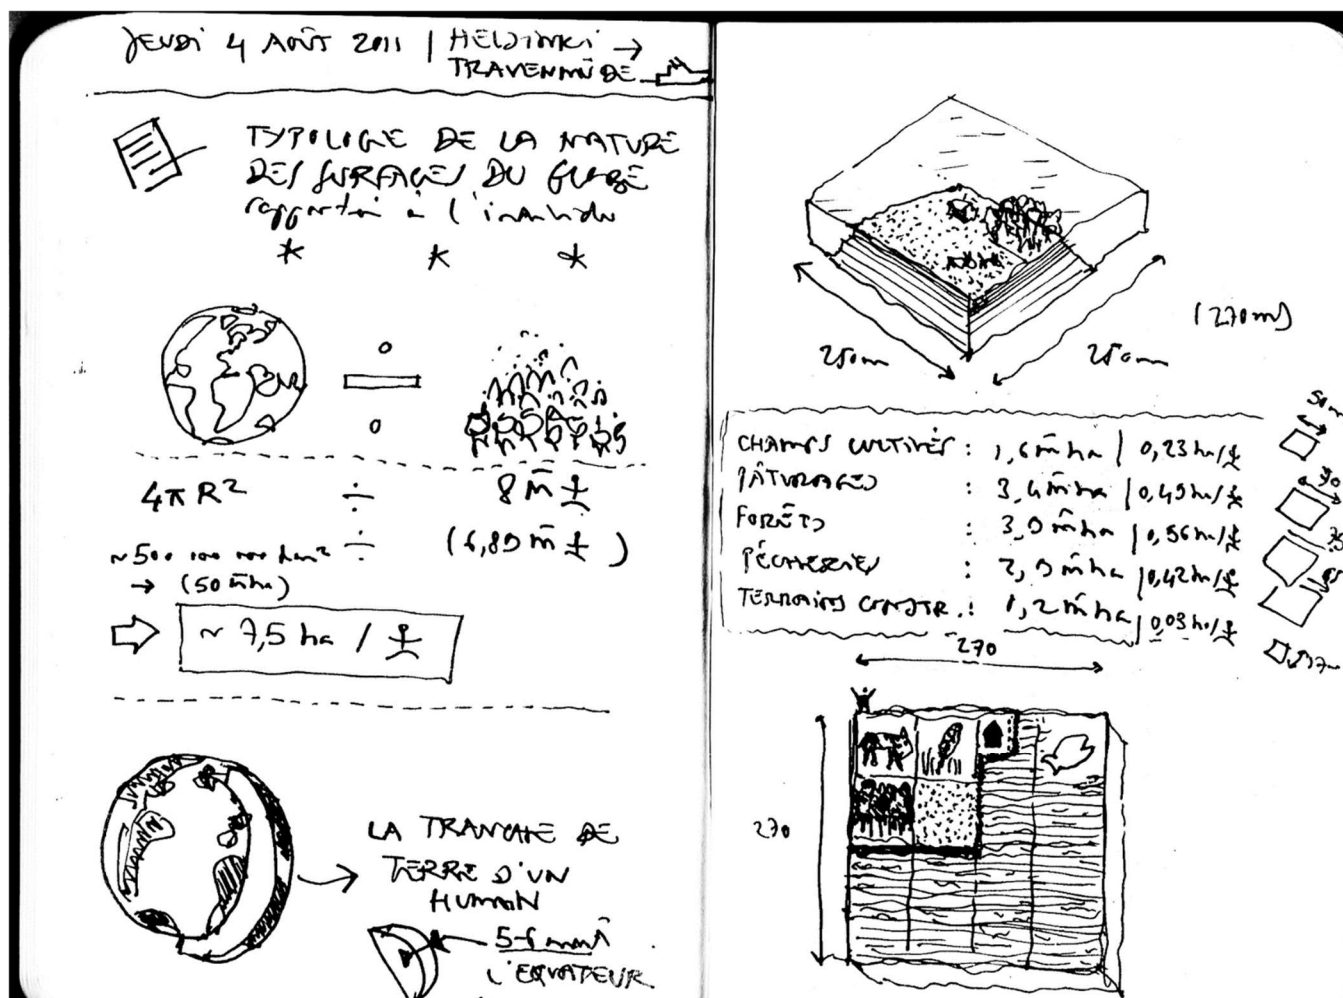 JEUDI 4 AOÛT 2011 | HELSINKI →
TRAVEMÜNDE
TYPOLOGIE DE LA NATURE
DES SURFACES DU GLOBE
rapportée à l'individu
* * *
4πR² ÷ 8 m̄
(6,89 m̄ )
~500 000 000 km²
→ (50 m̄ ha)
~ 7,5 ha /
LA TRANCHE DE
TERRE D'UN
HUMAIN
5-6 mm À
L'EQUATEUR.
250m
250m
(270m)
CHAMPS CULTIVÉS : 1,6 m̄ ha | 0,23 ha/
PÂTURAGES : 3,4 m̄ ha | 0,49 ha/
FORÊTS : 3,9 m̄ ha | 0,56 ha/
PÊCHERIES : 2,9 m̄ ha | 0,42 ha/
TERRAINS CONSTR. : 1,2 m̄ ha | 0,03 ha/
270
270